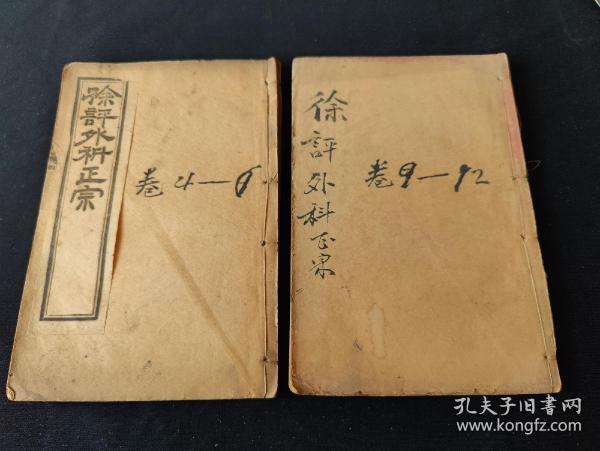 徐評外科正宗
卷4—6
徐評外科正宗
卷9—12
孔夫子旧书网
www.kongfz.com